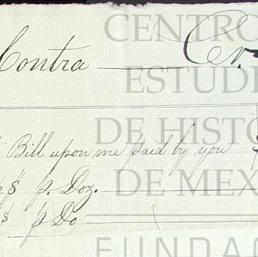 Contra Cr.
Bill upon me paid by you
$ p. Doz.
$ p Do
CENTRO
ESTUDI
DE HISTO
DE MEX
FUNDAC